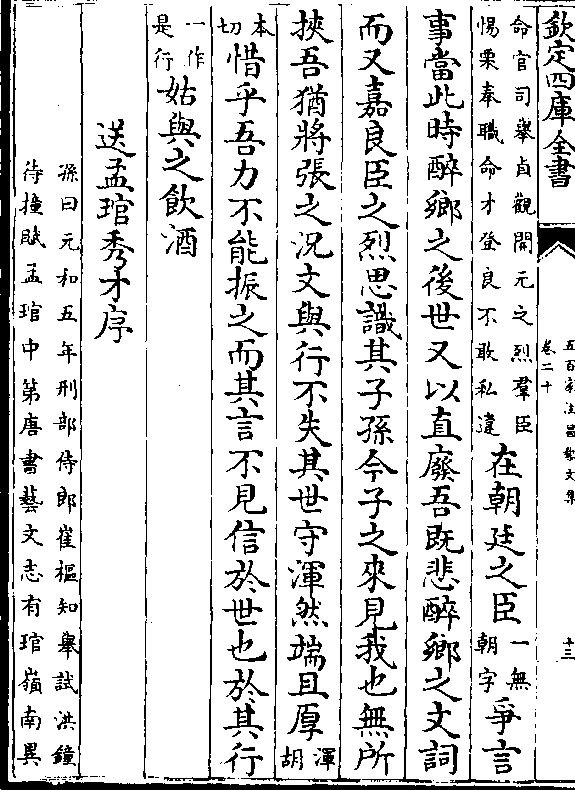 欽定四庫全書
五百家注昌黎文集
卷二十
十三
命官司舉貞觀開元之烈羣臣
惕栗奉職命才登良不敢私違
在朝廷之臣
一無
朝字
爭言
事當此時醉鄉之後世又以直廢吾既悲醉鄉之文詞
而又嘉良臣之烈思識其子孫今子之來見我也無所
挾吾猶將張之況文與行不失其世守渾然端且厚
渾
胡
本
切
惜乎吾力不能振之而其言不見信於世也於其行
一作
是行
姑與之飲酒
送孟琯秀才序
孫曰元和五年刑部侍郎崔樞知舉試洪鐘
待撞賦孟琯中第唐書藝文志有琯嶺南異